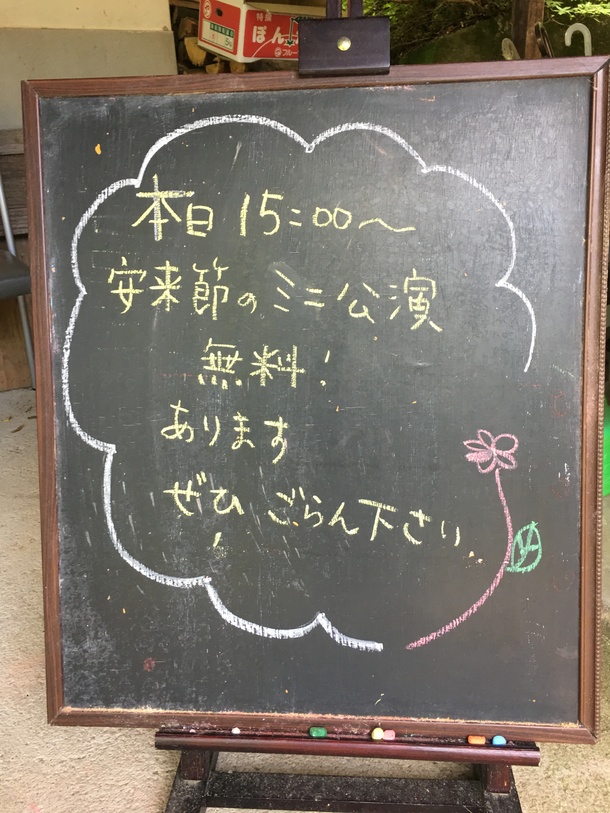 特撰
ぽん
本日 15:00〜
安来節のミニ公演
無料!
あります
ぜひ ごらん下さい
!